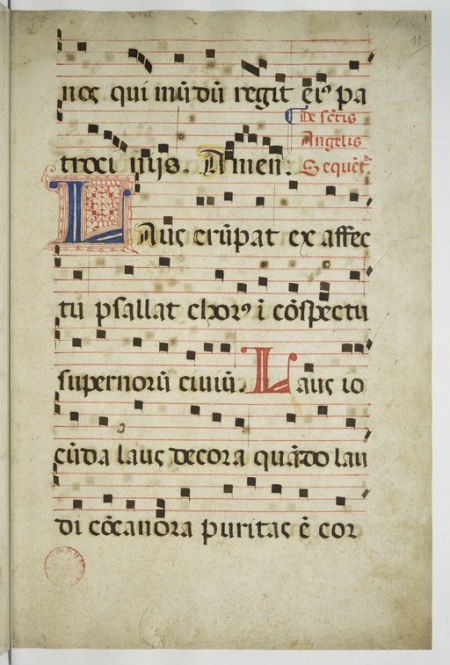 11
nos qui mūdū regit eiꝰ pa
De sctīs
trocinijs. Amen. Angelis
Sequēt
Laus erūpat ex affec
tu psallat chorꝰ ī cōspectu
supernorū ciuiū. Laus io
cūda laus decora quādo lau
di cōcanora puritas ē cor